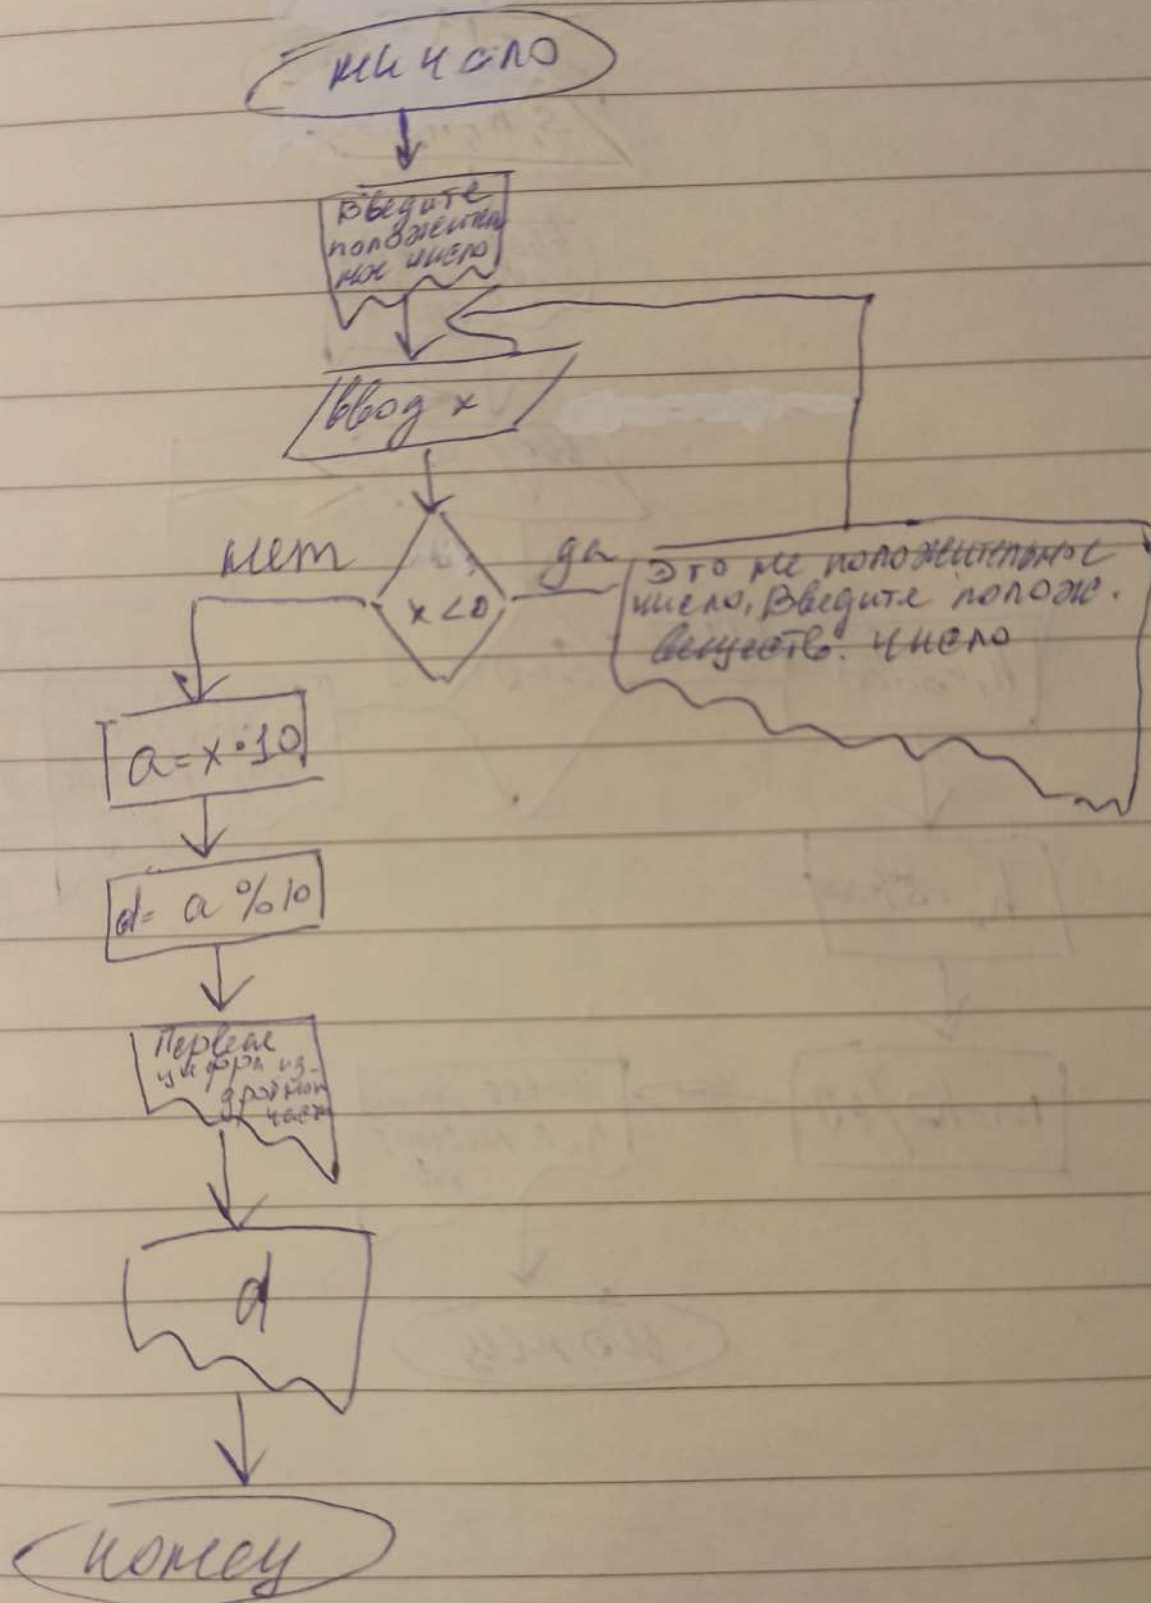 начало
Введите
положител
ное число
ввод x
нет
да
x<0
Это не положительное
число. Введите полож.
веществ. число
a=x·10
d= a %10
Первая
цифра из
дробной
части
d
конец